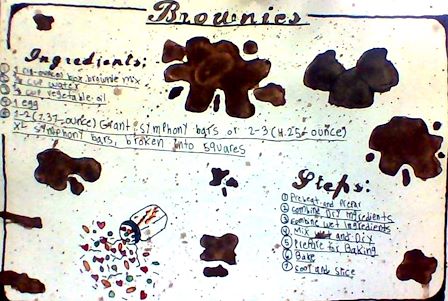 Brownies
Ingredients:
① box brownie mix
② cup water
③ cup vegetable oil
④ 1 egg
⑤ 1-2 (7.37-ounce) Giant symphony bars or 2-3 (4.25-ounce)
XL symphony bars, broken into squares
Steps:
① Preheat and Prepar
② Combine Dry Ingredients
③ Combine wet Ingredients
④ Mix and Dry
⑤ Prepare for Baking
⑥ Bake
⑦ Cool and Slice